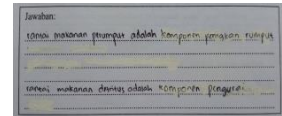 Jawaban:
rantai makanan perumput adalah komponen pemakan rumput
rantai makanan detritus adalah komponen pengurai